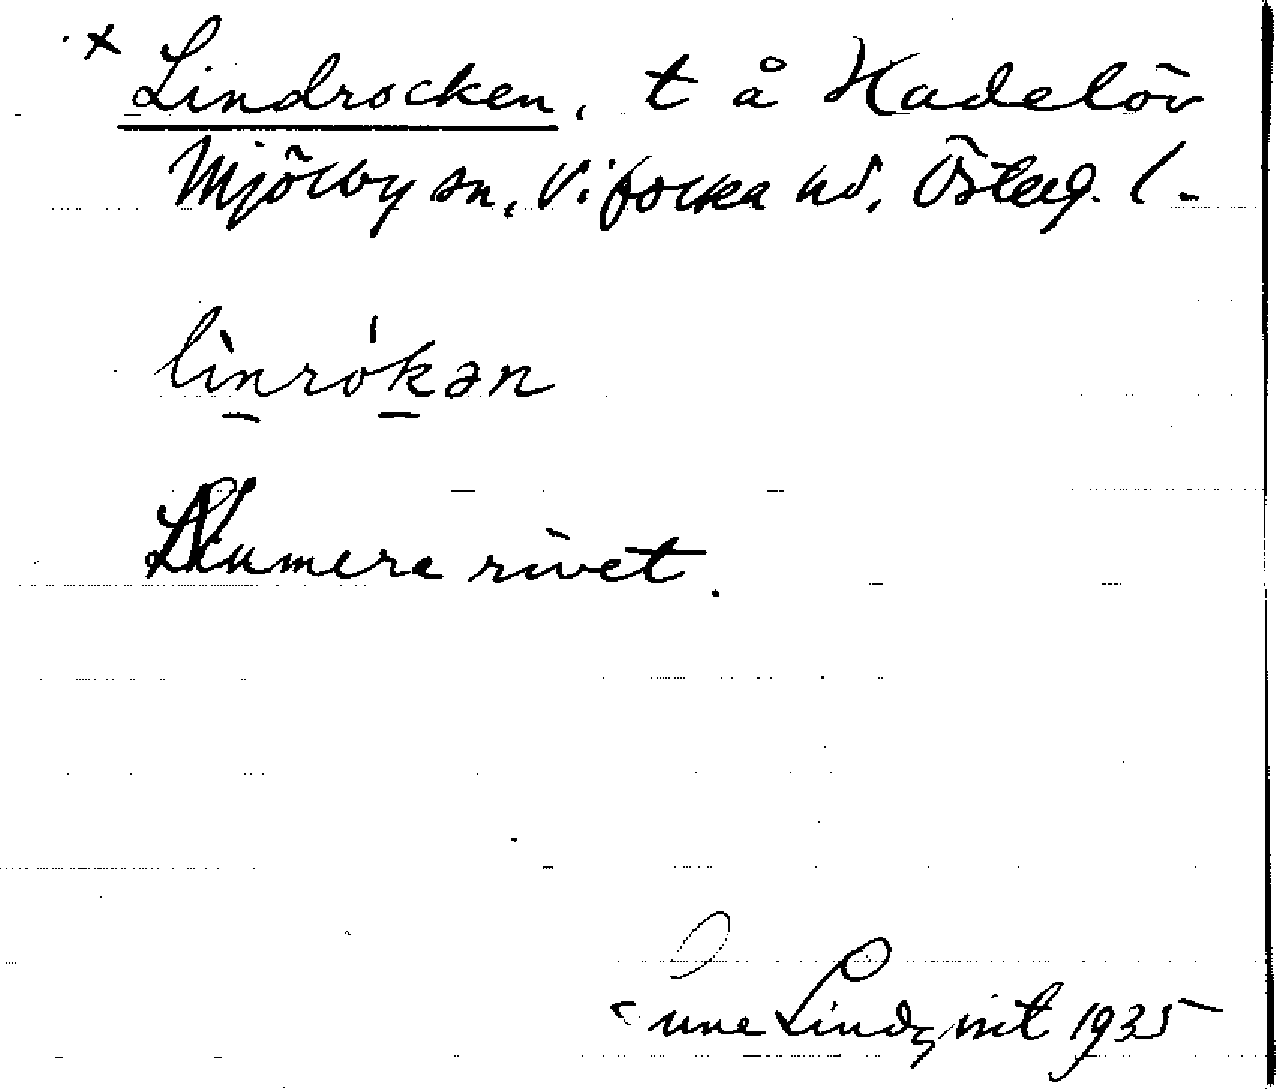 × Lindrocken, t å Hadelöv
Mjölby sn, Vifolka hd, Österg. l-
lìnrókən
Numera rivet.
Sune Lindqvist 1935